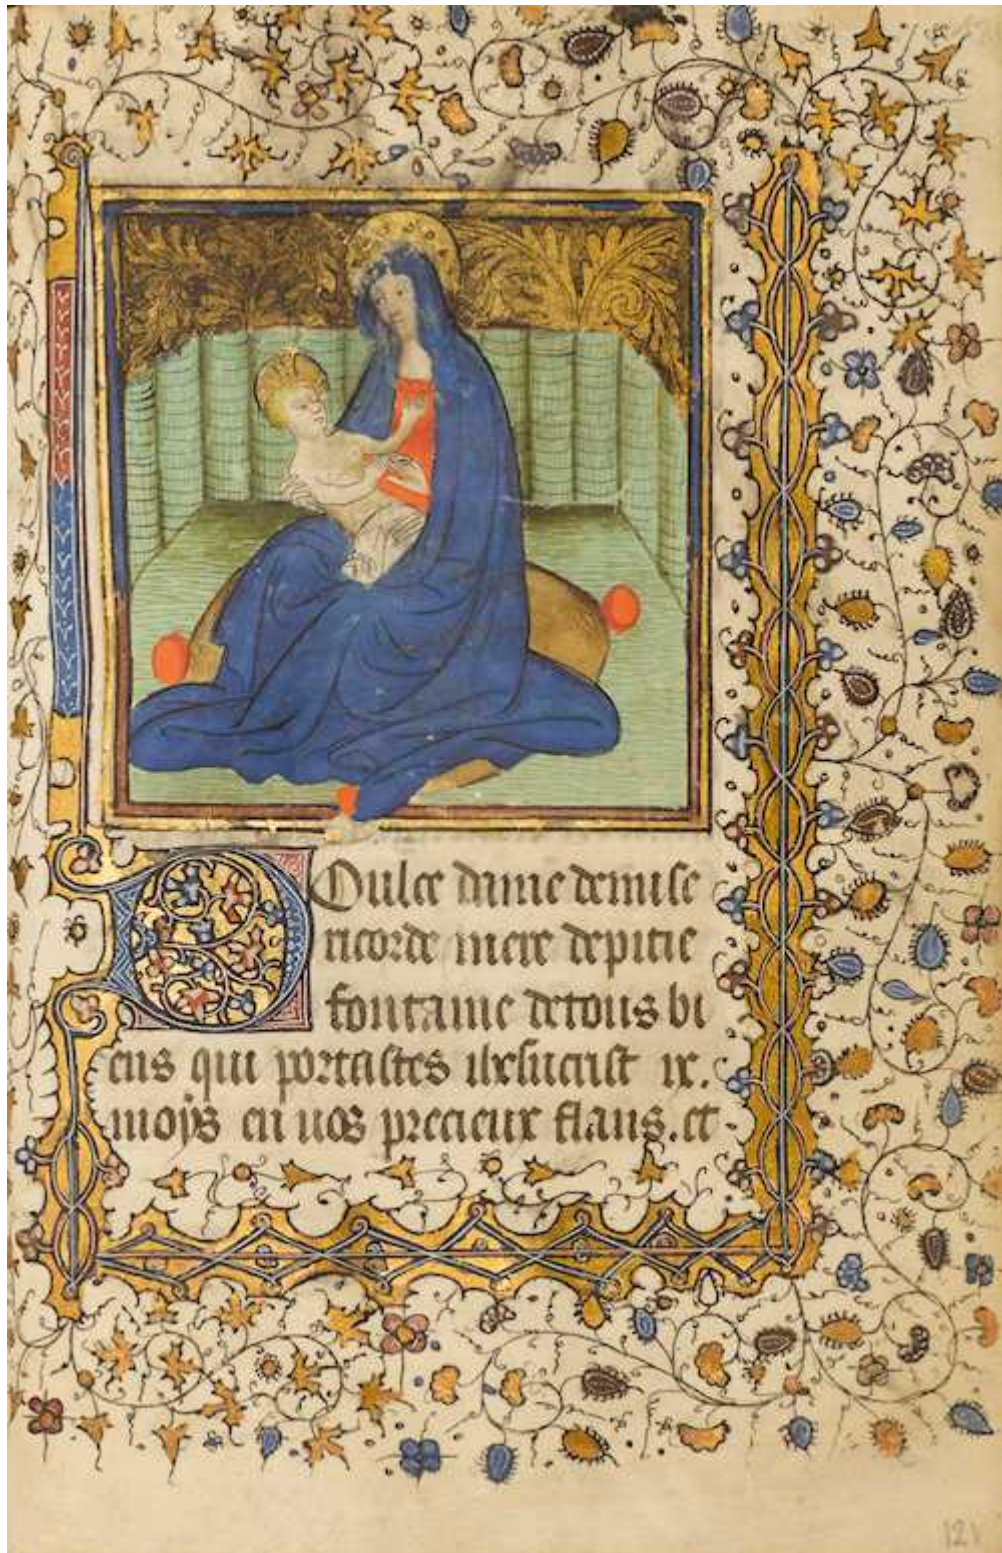 Doulce dame de mise
ricorde mere de pitie
fontaine de tous bi
ens qui portastes ihesucrist ix.
moys en uos precieux flans. et
121